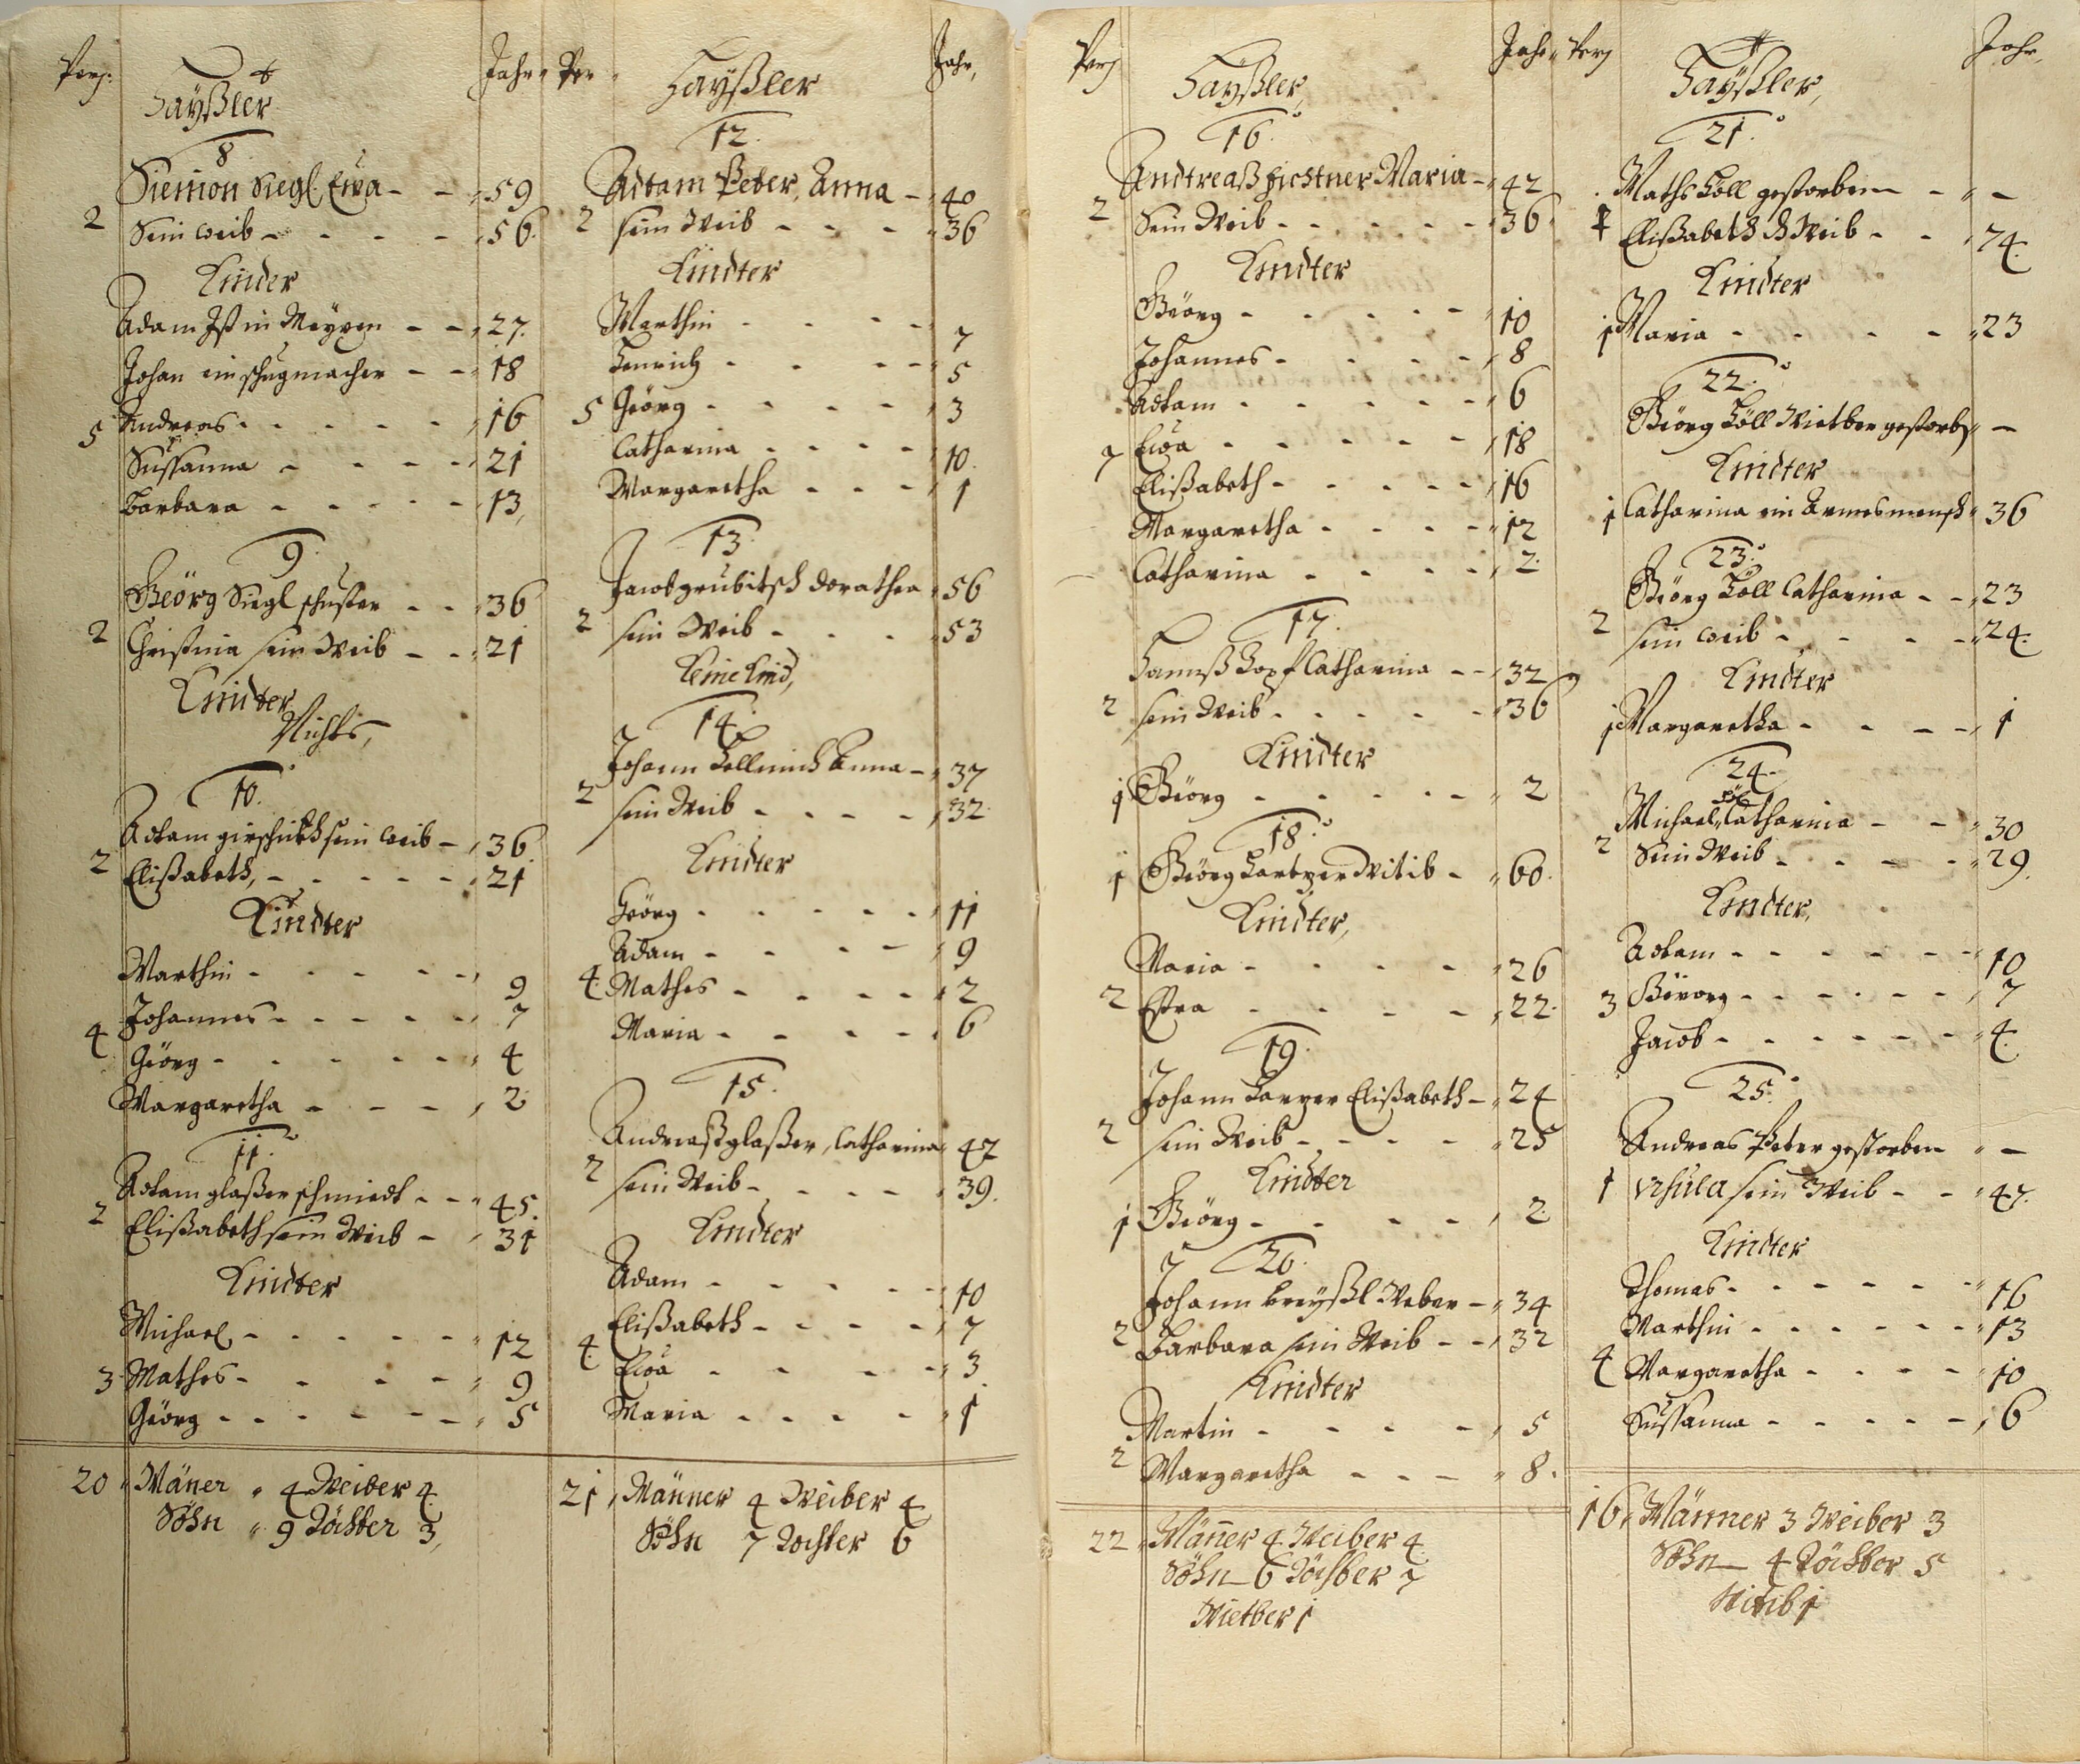 Pers: Haÿßler Jahr
8
Siemon Siegl. Ewa - - 59
2 Sein weib - - - - 56.
Kinder
Adam Ist in Meyxen - - 27.
Johan ein schugmacher - - 18
5 Andreas - - - - - 16
Sußanna - - - - 21
Barbara - - - - - 13,
9
Geörg Siegl schuster - - 36
2 Christina sein Weib - - 21
Kindter
Nichts,
10.
Adtam sein weib - 36
2 Elißabeth, - - - - - 21
Kindter
Marthin - - - - - 9
Johannes - - - - - 7
4 Geörg - - - - - - 4
Margaretha - - - 2
11.
Adtam glaßer schmiedt - - 45.
2 Elißabeth sein Weib - 31
Kindter
Michael - - - - - 12
3 Mathes - - - - - 9
Geörg - - - - - - 5
20 Mäner 4 Weiber 4
Söhn 9 Töchter 3,
Per Haÿßler Jahr,
12.
Adtam Peter, Anna - 40
2 sein Weib - - - - 36
Kindter
Marthin - - - - 7
Henrich - - - - 5
5 Geörg - - - - 3
Catharina - - - - 10.
Margaretha - - - 1
13.
Jacob grubitsch dorathea 56
2 sein Weib - - - - 53
Keine Kind,
14.
Johann Anna - 37
2 sein Weib - - - - 32
Kindter
Geörg - - - - - 11
Adam - - - - 9
4 Mathes - - - - 2
Maria - - - - 6
15.
Andreaß glaßer, Catharina 47
2 sein Weib - - - - 39.
Kindter
Adam - - - - - 10
Elißabeth - - - - 7
4 Ewa - - - - 3
Maria - - - - 1
21, Männer 4 Weiber 4
Söhn 7 Tochter 6
Pers Haÿßler, Jahr
16.
Andtreaß fichtner Maria - 42
2 Sein Weib - - - - - 36
Kindter
Geörg - - - - - 10
Johannes - - - - 8
Adtam - - - - - 6
7 Ewa - - - - - 18
Elißabeth - - - - - 16
Margaretha - - - - 12
Catharina - - - - 2.
17.
Hannß Catharina - - 32
2 sein Weib - - - - - 36
Kindter
1 Geörg - - - - - 2
18.
1 Geörg Witib - 60.
Kindter,
Maria - - - - 26
2 Efra - - - - 22.
19.
Johann Elißabeth - 24
2 sein Weib - - - - 25
Kindter
1 Geörg - - - - 2
20.
Johann Weber - 34
2 Barbara sein Weib - - 32
Kindter
Martin - - - - 5
2 Margaretha - - - 8.
22 Männer 4 Weiber 4.
Söhn 6 Töchter 7
Wietber 1
Pers Haÿßler, Jahr,
21.
Maths Köll gestorben - -
1 Elißabeth d Weib - - 74.
Kindter
1 Maria - - - - - 23
22.
Geörg Köll Wietber gestorb -
Kindter
1 Catharina ein Armes mensch 36
23.
Geörg Köll Catharina - - 23
2 sein weib - - - - 24.
Kindter
1 Margaretha - - - - 1
24.
Michael, Catharina - - 30
2 Sein Weib - - - - - 29.
Kindter,
Adtam - - - - - - 10
3 Geörg - - - - - - 7
Jacob - - - - - - 4.
25.
Andreas Peter gestorben -
1 Vrsula sein Weib - - 47.
Kindter
Thomas - - - - - - 16
Marthin - - - - - - 13
4 Margaretha - - - - 10
Sußanna - - - - - 6
16, Männer 3 Weiber 3
Söhn 4 Töchter 5
Witib 1